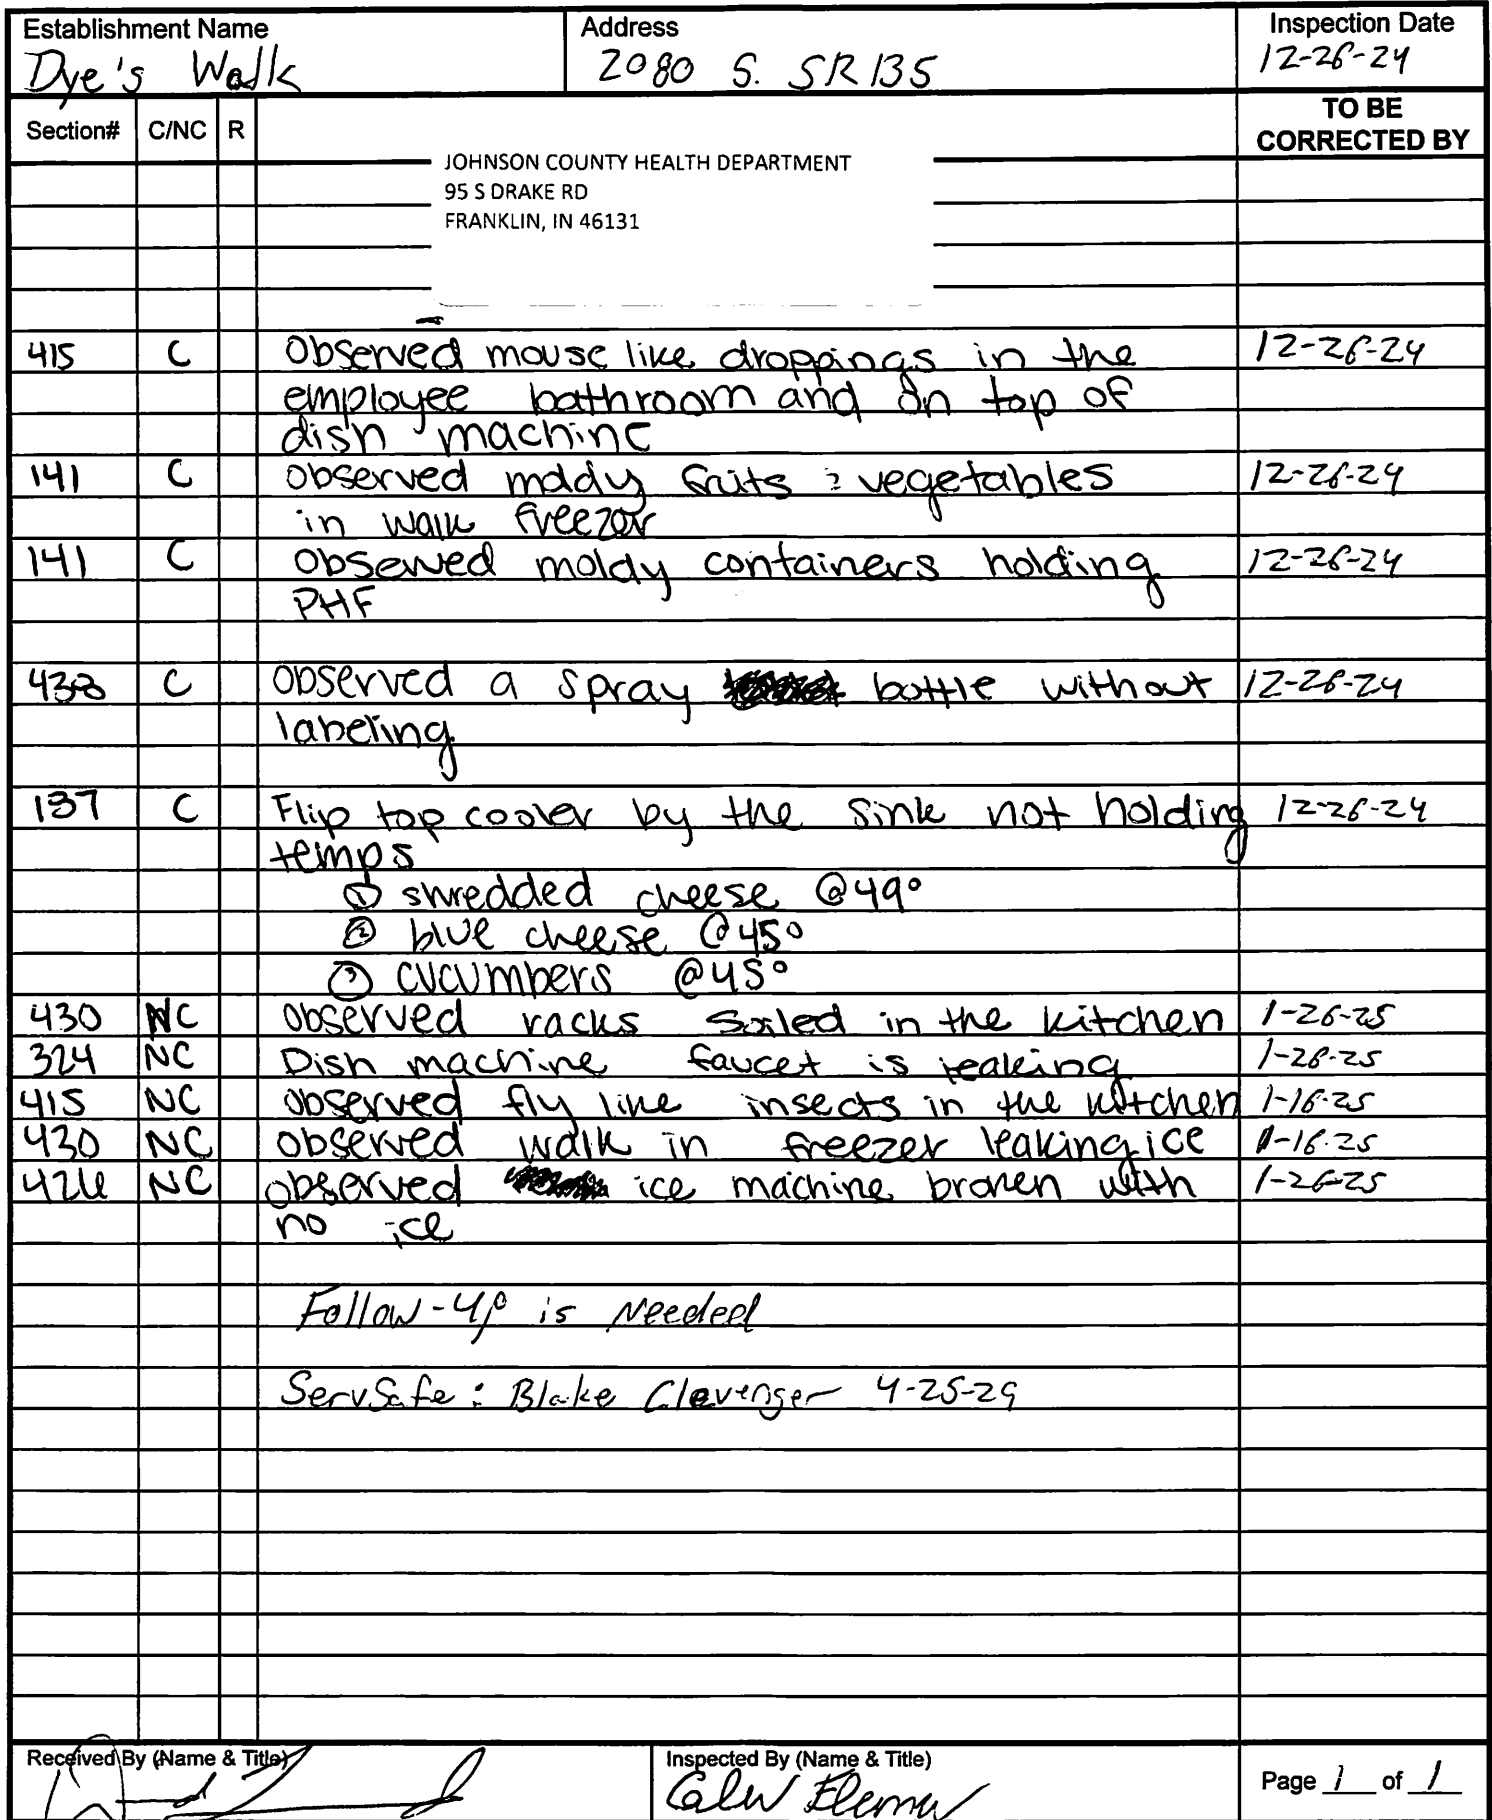 Establishment Name Address Inspection Date
Dye's Walk 2080 S. SR 135 12-26-24
Section# C/NC R TO BE CORRECTED BY
JOHNSON COUNTY HEALTH DEPARTMENT
95 S DRAKE RD
FRANKLIN, IN 46131
415 C Observed mouse like droppings in the 12-26-24
employee bathroom and on top of
dish machine
141 C observed moldy fruits & vegetables 12-26-24
in walk freezer
141 C Observed moldy containers holding 12-26-24
PHF
438 C Observed a spray bottle without 12-26-24
labeling
137 C Flip top cooler by the sink not holding 12-26-24
temps
① shredded cheese @49°
② blue cheese @45°
③ cucumbers @45°
430 NC observed racks soiled in the kitchen 1-26-25
324 NC Dish machine faucet is leaking 1-26-25
415 NC observed fly like insects in the kitchen 1-16-25
430 NC observed walk in freezer leaking ice 1-16-25
426 NC observed ice machine broken with 1-26-25
no ice
Follow-up is Needed
ServSafe: Blake Clevenger 4-25-29
Received By (Name & Title) Inspected By (Name & Title) Page 1 of 1